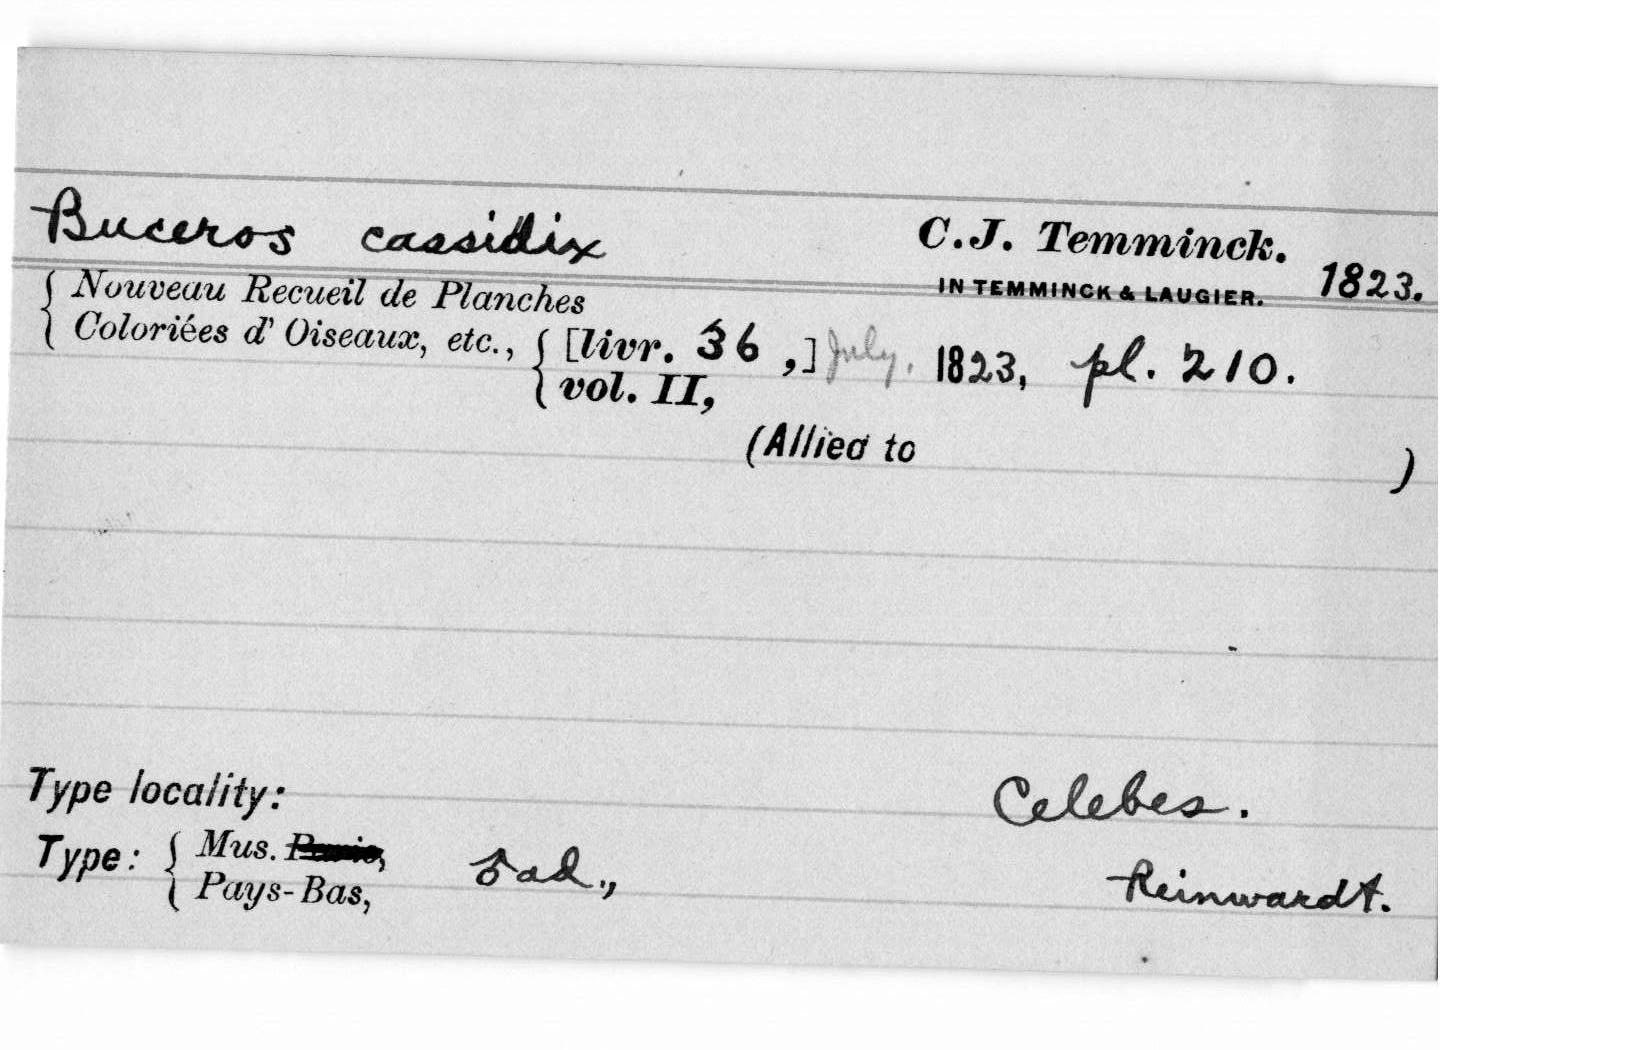 Buceros cassidix C.J. Temminck.
IN TEMMINCK & LAUGIER. 1823.
{ Nouveau Recueil de Planches
Coloriées d' Oiseaux, etc., { [livr. 36 ,] July. 1823, pl. 210.
vol. II,
(Allied to )
Type locality: Celebes.
Type: { Mus. Paris, ad., Reinwardt.
Pays-Bas,